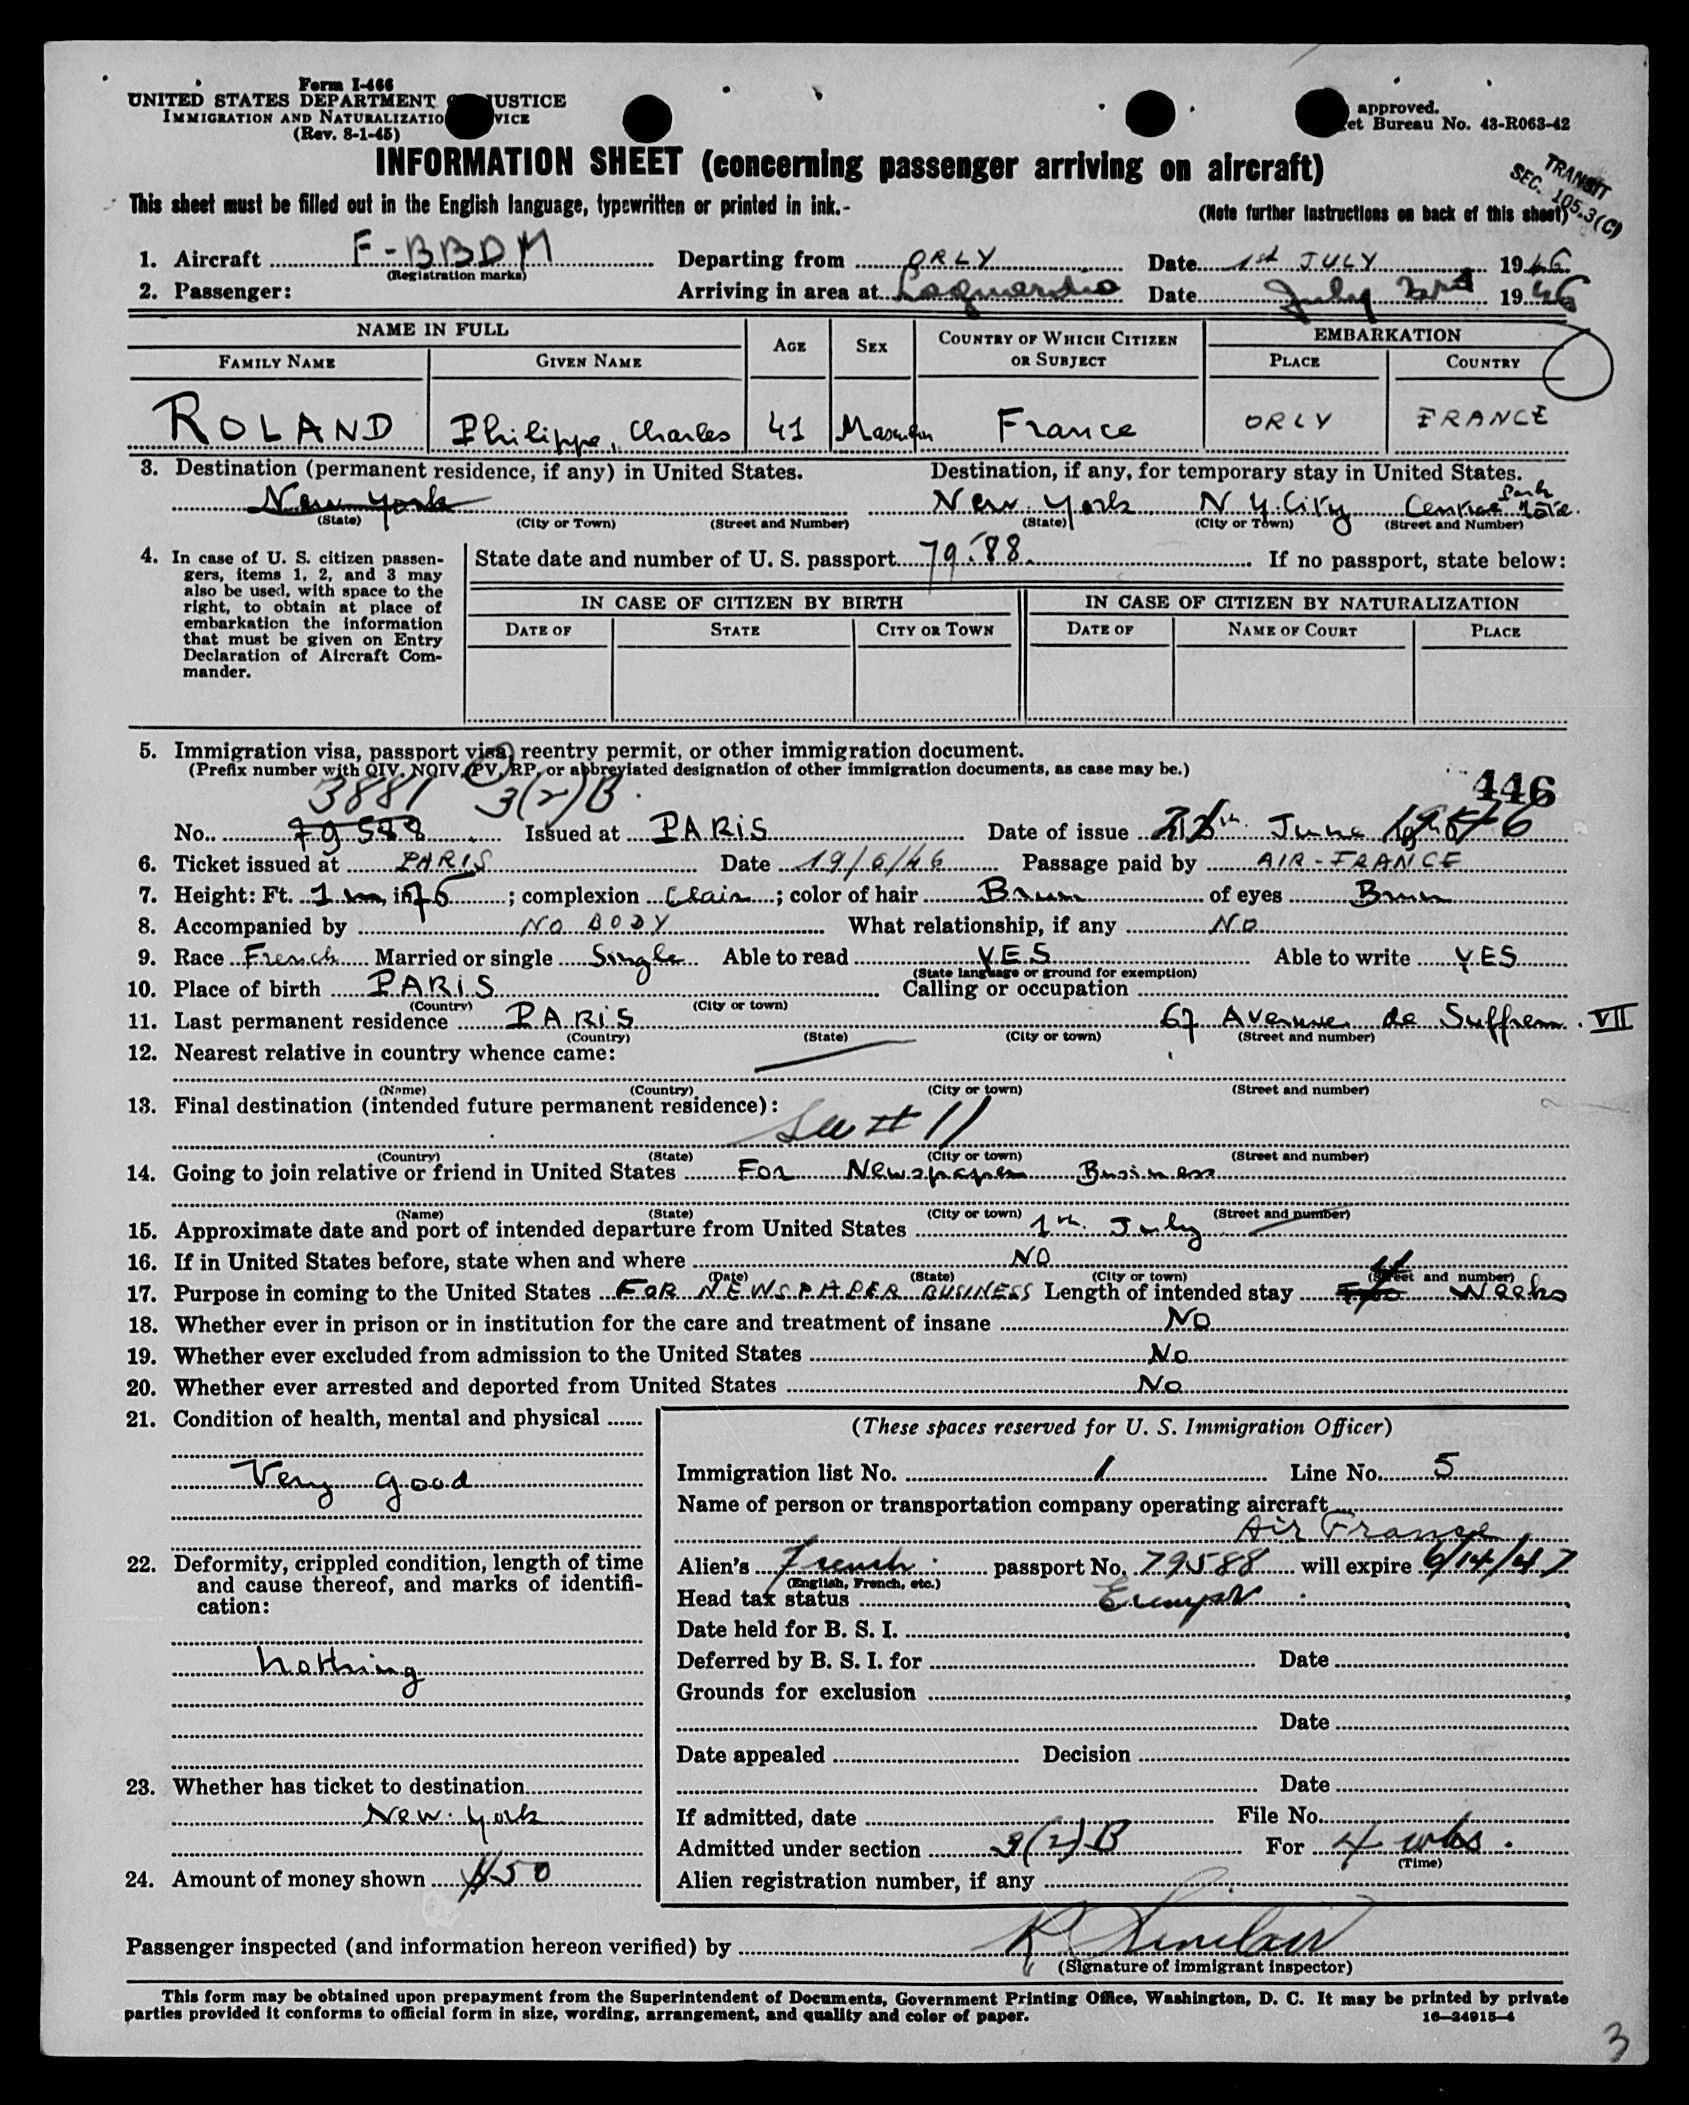 Form I-466
UNITED STATES DEPARTMENT JUSTICE
IMMIGRATION AND NATURALIZATIO VICE
(Rev. 8-1-45)
approved.
et Bureau No. 43-R063-42
INFORMATION SHEET (concerning passenger arriving on aircraft)
TRANSIT
SEC. 105.3(C)
This sheet must be filled out in the English language, typewritten or printed in ink.-
(Note further instructions on back of this sheet)
1. Aircraft F-BBDM Departing from ORLY Date 1st JULY 1946
(Registration marks)
2. Passenger: Arriving in area at Laguardia Date July 2nd 1946
NAME IN FULL AGE SEX COUNTRY OF WHICH CITIZEN OR SUBJECT EMBARKATION
FAMILY NAME GIVEN NAME PLACE COUNTRY
ROLAND Philippe, Charles 41 Masculin France ORLY FRANCE
3. Destination (permanent residence, if any) in United States. Destination, if any, for temporary stay in United States.
New York New York N Y City Central Park
(State) (City or Town) (Street and Number) (State) (City or Town) (Street and Number)
4. In case of U. S. citizen passen-
gers, items 1, 2, and 3 may
also be used, with space to the
right, to obtain at place of
embarkation the information
that must be given on Entry
Declaration of Aircraft Com-
mander.
State date and number of U. S. passport 79.588 If no passport, state below:
IN CASE OF CITIZEN BY BIRTH IN CASE OF CITIZEN BY NATURALIZATION
DATE OF STATE CITY OR TOWN DATE OF NAME OF COURT PLACE
5. Immigration visa, passport visa, reentry permit, or other immigration document.
(Prefix number with QIV, NQIV, PV, RP, or abbreviated designation of other immigration documents, as case may be.)
446
3881 3(2)B
No. 79588 Issued at PARIS Date of issue June 1946
6. Ticket issued at PARIS Date 19/6/46 Passage paid by AIR-FRANCE
7. Height: Ft. 1 m, in. 75; complexion Clair; color of hair Brun of eyes Brun
8. Accompanied by NO BODY What relationship, if any NO
9. Race French Married or single Single Able to read YES Able to write YES
(State language or ground for exemption)
10. Place of birth PARIS Calling or occupation
(Country) (City or town)
11. Last permanent residence PARIS 67 Avenue de Suffren. VII
(Country) (State) (City or town) (Street and number)
12. Nearest relative in country whence came:
(Name) (Country) (City or town) (Street and number)
13. Final destination (intended future permanent residence):
See # 11
(Country) (State) (City or town) (Street and number)
14. Going to join relative or friend in United States For Newspaper Business
(Name) (State) (City or town) (Street and number)
15. Approximate date and port of intended departure from United States 1th July
16. If in United States before, state when and where NO
(Date) (State) (City or town) (Street and number)
17. Purpose in coming to the United States FOR NEWSPAPER BUSINESS Length of intended stay 4 Weeks
18. Whether ever in prison or in institution for the care and treatment of insane NO
19. Whether ever excluded from admission to the United States No
20. Whether ever arrested and deported from United States No
21. Condition of health, mental and physical
Very good
22. Deformity, crippled condition, length of time
and cause thereof, and marks of identifi-
cation:
Nothing
23. Whether has ticket to destination
New York
24. Amount of money shown $50
(These spaces reserved for U. S. Immigration Officer)
Immigration list No. 1 Line No. 5
Name of person or transportation company operating aircraft
Air France
Alien's French passport No. 79588 will expire 6/14/47
(English, French, etc.)
Head tax status Exempt
Date held for B. S. I.
Deferred by B. S. I. for Date
Grounds for exclusion
Date
Date appealed Decision
Date
If admitted, date File No.
Admitted under section 3(2)B For 4 wks.
(Time)
Alien registration number, if any
Passenger inspected (and information hereon verified) by R Sinclair
(Signature of immigrant inspector)
This form may be obtained upon prepayment from the Superintendent of Documents, Government Printing Office, Washington, D. C. It may be printed by private
parties provided it conforms to official form in size, wording, arrangement, and quality and color of paper. 16—24915-4
3